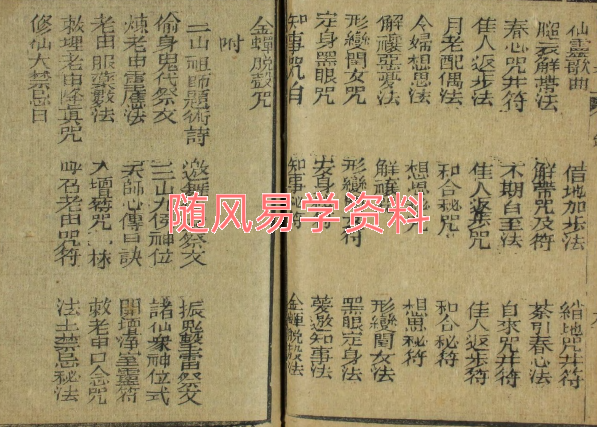 仙靈歌曲 借地加步法 縮地咒并符
腿衣解帶法 解帶咒及符 茶引春心法
春心咒并符 不期自至法 自來咒并符
佳人返步法 佳人返葉咒 佳人返步符
月老配偶法 和合秘咒 和合秘符
令婦想思法 想思 想思秘符
解禳惡夢法 解禳 形變閨女法
形變閨女咒 形變 黑眼定身法
定身黑眼咒 定身 夢邀知事法
知事咒自 知事秘符 金蟬脫殼法
金蟬脫殼咒
附
三山祖師題術詩 祭文 振殿擊雷祭文
偷身鬼代祭文 三山九侯神位 諸仙眾神位式
煉老由雷屠法 天師心傳口訣 開壇淨室靈符
老由服藥數法 入壇秘咒 敕老申口念咒
敕理老由降真咒 呼召老由咒符 法土禁忌秘法
修仙大禁忌日
随风易学资料